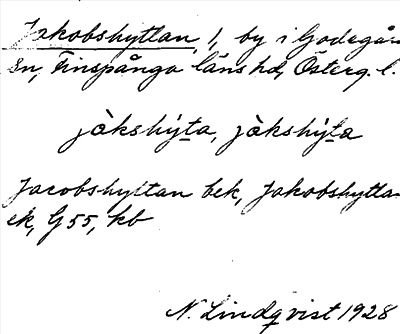 Jakobshyttan, 1, by i Godegår
sn, Finspånga läns hd, Österg. l.
jàkshýta, jàkshýta
Jacobshyttan bek, Jakobshytta
ek, G 55, kb
N. Lindqvist 1928